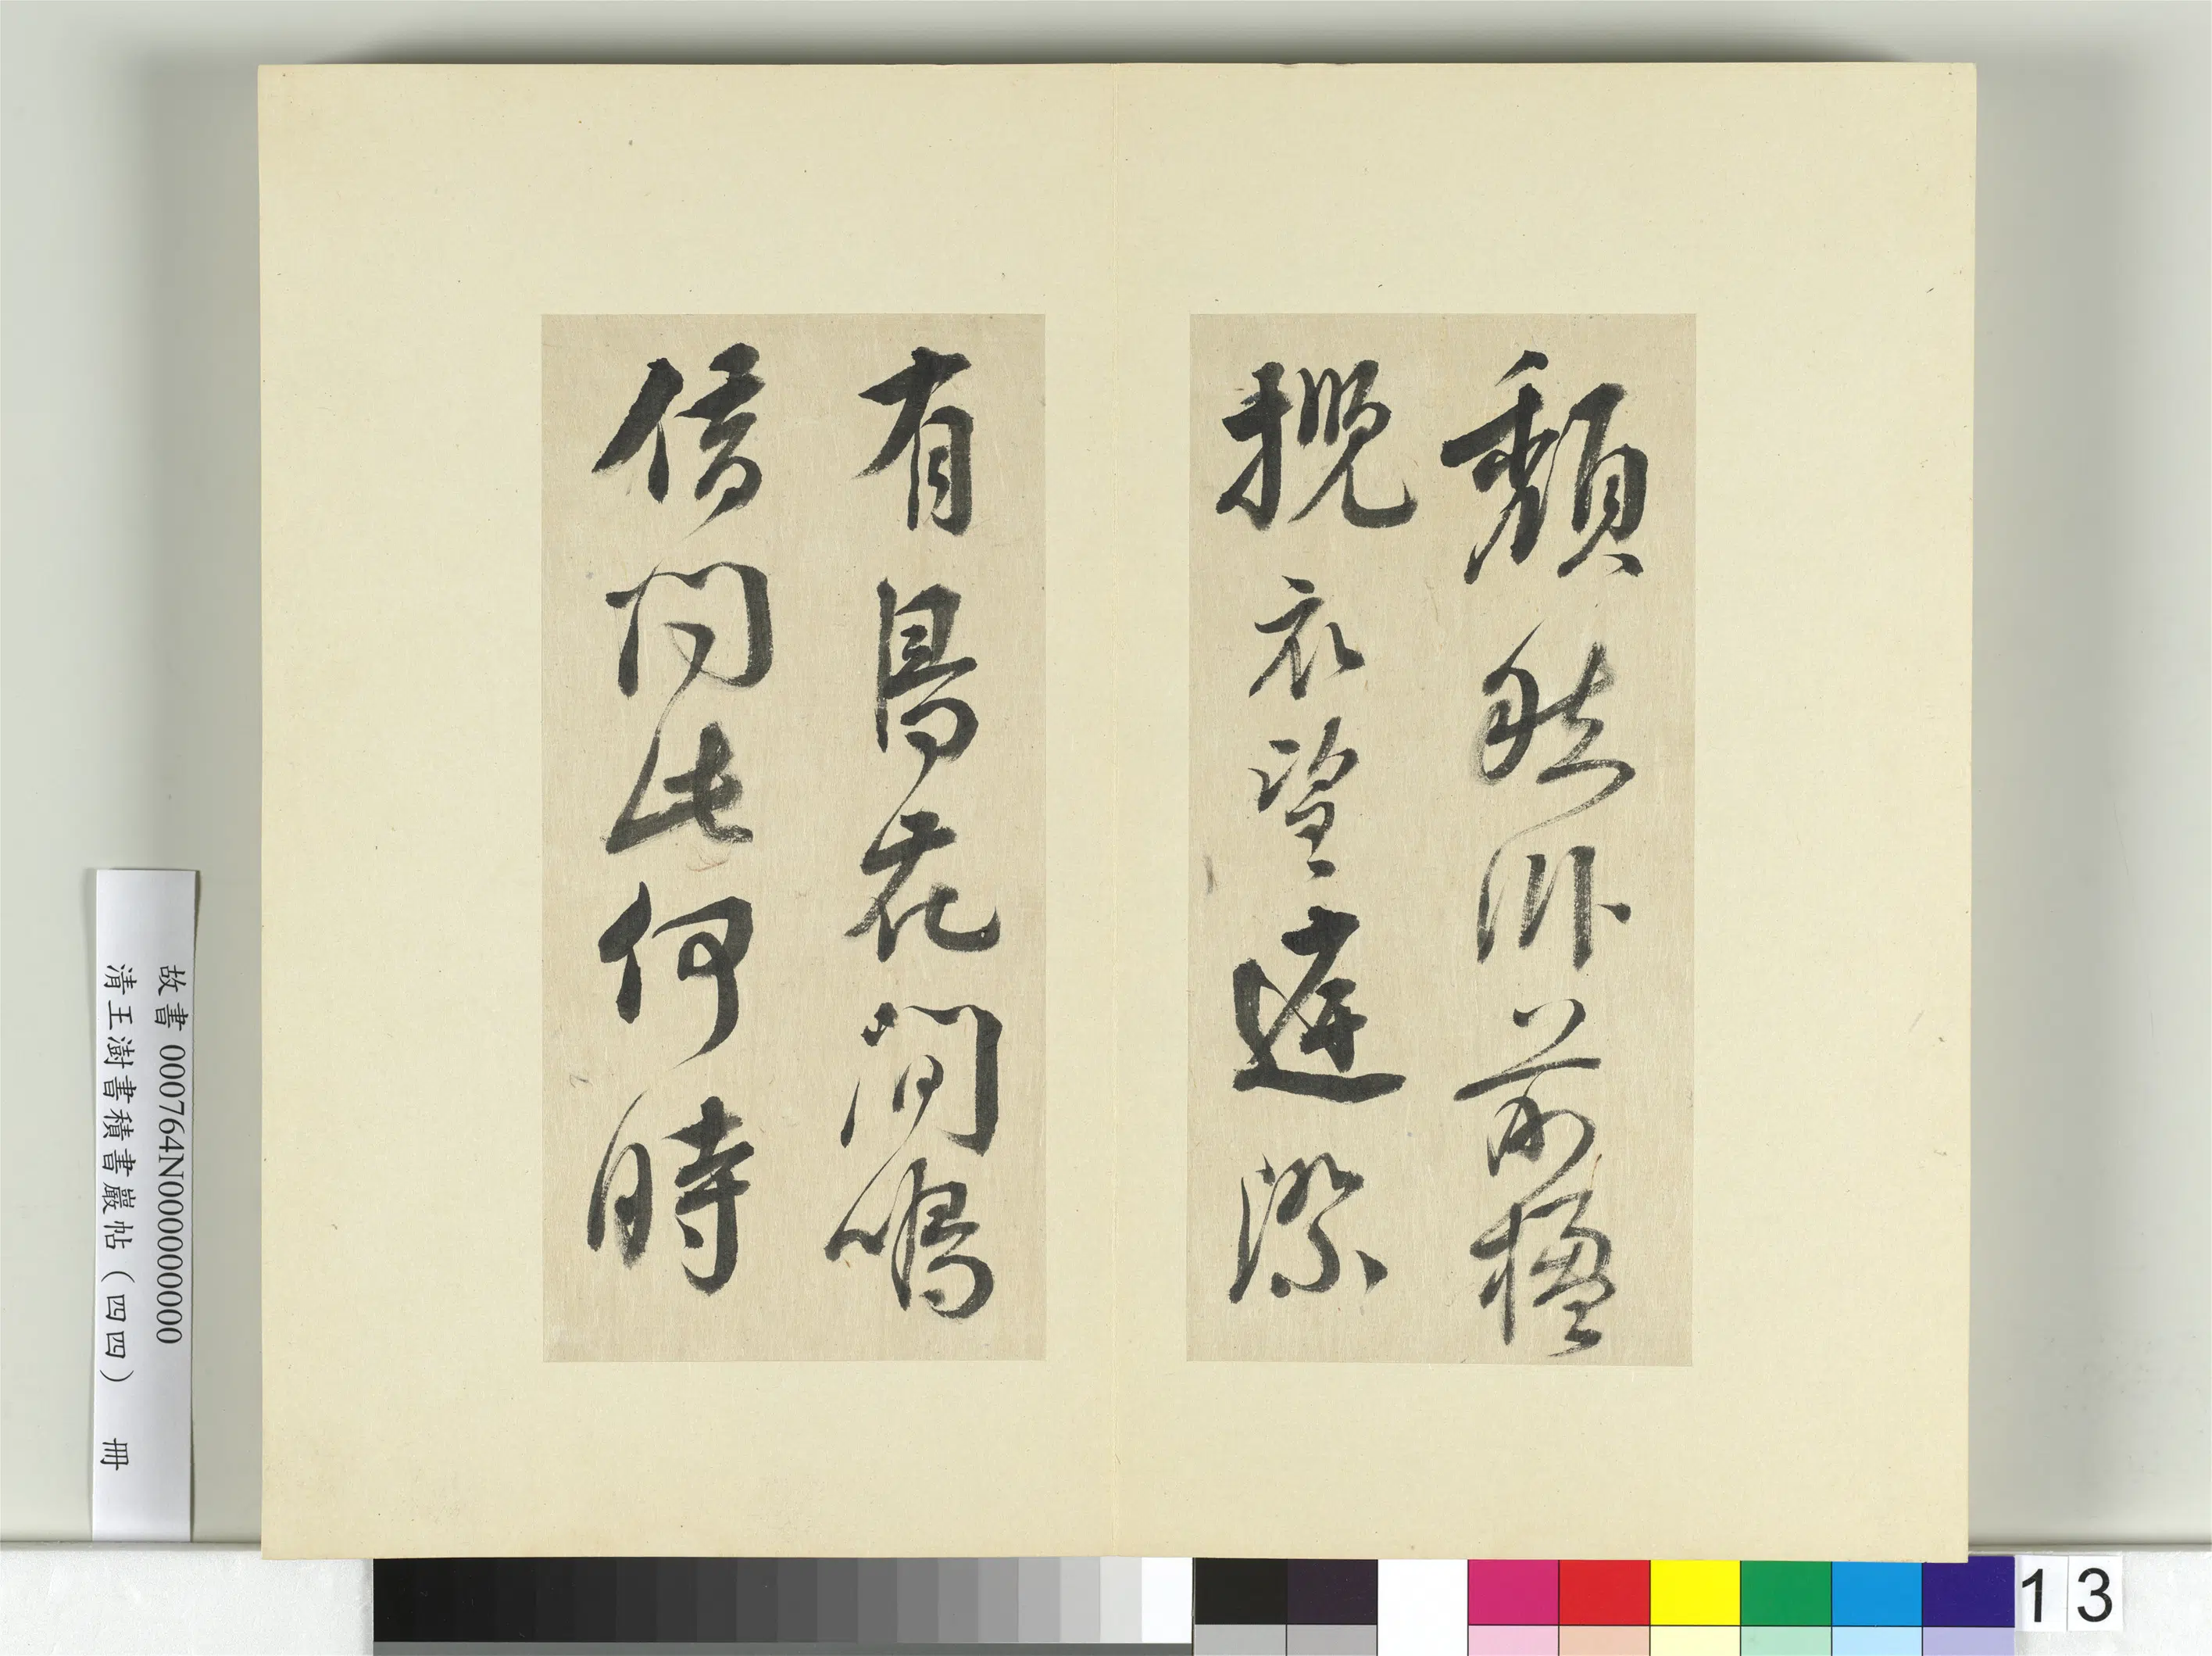 頹然臥前楹
攬衣望庭際
有鳥花間鳴
借問此何時
故書 000764N000000000
清王澍書積書巖帖(四四) 冊
13